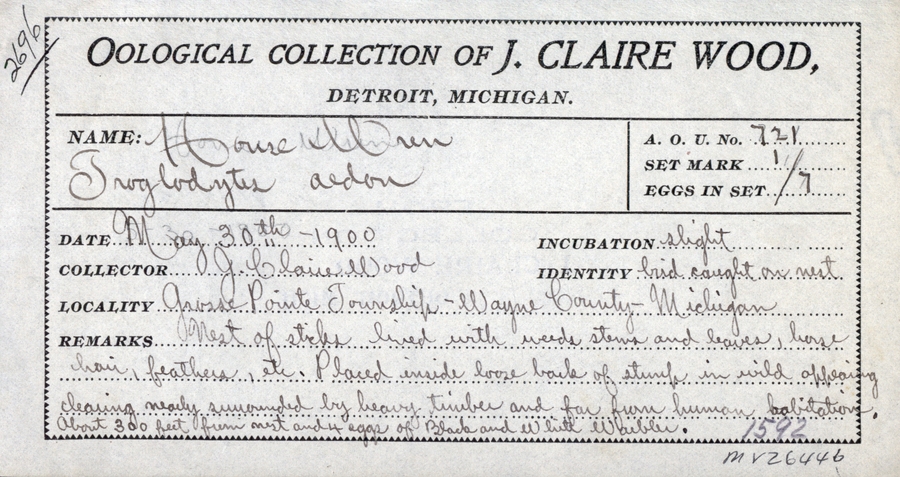 2696
OOLOGICAL COLLECTION OF J. CLAIRE WOOD,
DETROIT, MICHIGAN.
NAME: House Wren
Troglodytes aedon
A. O. U. No. 721
SET MARK 1/7
EGGS IN SET
DATE May 30th - 1900
INCUBATION slight
COLLECTOR J. Claire Wood
IDENTITY bird caught on nest
LOCALITY Grosse Pointe Township - Wayne County - Michigan
REMARKS Nest of sticks lined with weeds stems and leaves, horse
hair, feathers, etc. Placed inside loose bark of stump in wild appearing
clearing nearly surrounded by heavy timber and far from human habitation.
About 300 feet from nest and 4 eggs of Black and White Warbler.
1592
MVZ6446